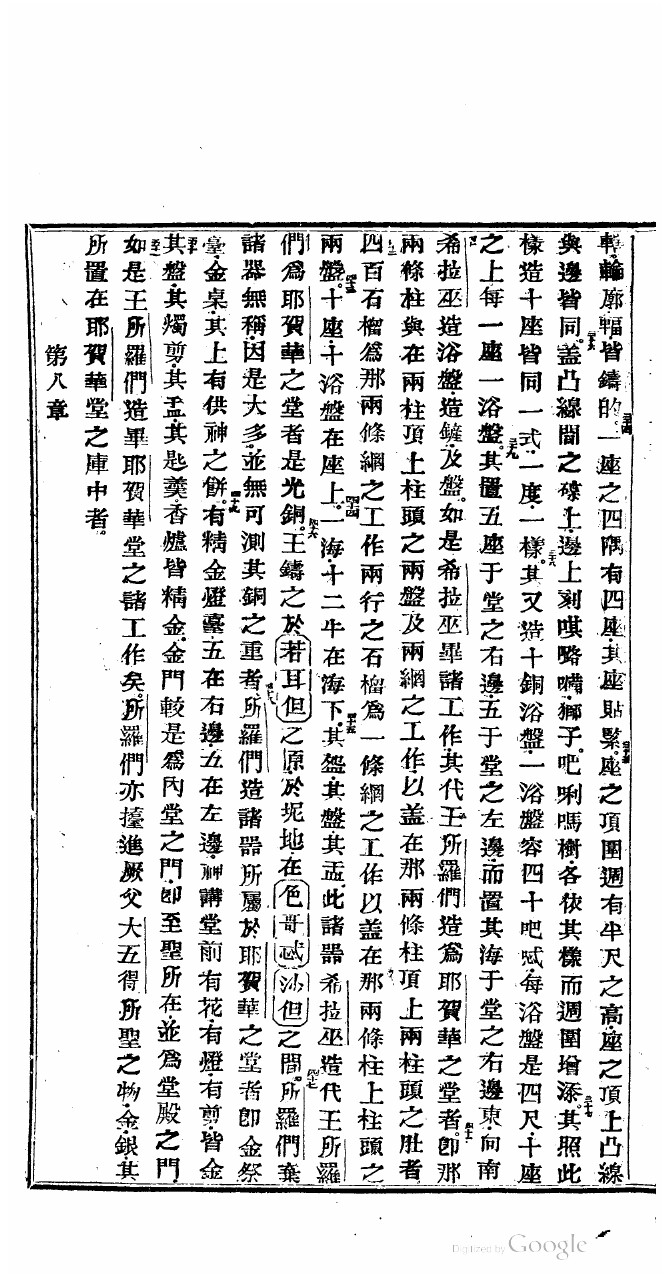 轉輪廓輻皆鑄的。三十四一座之四隅有四座其座貼緊。三十五座之頂圍週有半尺之高座之頂上凸線
與邊皆同。三十六蓋凸線間之磉上邊上刻𠸄咯嘴獅子吧唎嗎樹各依其樣而週圍增添。三十七其照此
樣造十座皆同一式一度一樣。三十八其又造十銅浴盤一浴盤容四十吧忒每浴盤是四尺十座
之上每一座一浴盤。三十九其置五座于堂之右邊五于堂之左邊而置其海于堂之右邊東向南
希拉巫造浴盤造鏟及盤。如是希拉巫畢諸工作其代王所羅們造為耶賀華之堂者。四十一即那
兩條柱與在兩柱頂上柱頭之兩盤及兩網之工作以蓋在那兩條柱頂上兩柱頭之肚者
四百石榴為那兩條網之工作兩行之石榴為一條網之工作以蓋在那兩條柱上柱頭之
兩盤。四十三十座十浴盤在座上。四十四一海十二牛在海下。四十五其盌其盤其盂此諸器希拉巫造代王所羅
們為耶賀華之堂者是光銅。四十六王鑄之於若耳但之原於坭地在色哥忒沙但之間。四十七所羅們棄
諸器無稱因是大多並無可測其銅之重者。四十八所羅們造諸器所屬於耶賀華之堂者即金祭
臺金桌其上有供神之餅。四十九有精金燈臺五在右邊五在左邊神講堂前有花有燈有剪皆金
五十其盤其燭剪其盂其匙羹香爐皆精金金門較是為內堂之門即至聖所在並為堂殿之門
五十一如是王所羅們造畢耶賀華堂之諸工作矣。所羅們亦擡進厥父大五得所聖之物金銀其
所置在耶賀華堂之庫中者。
第八章
Digitized by Google